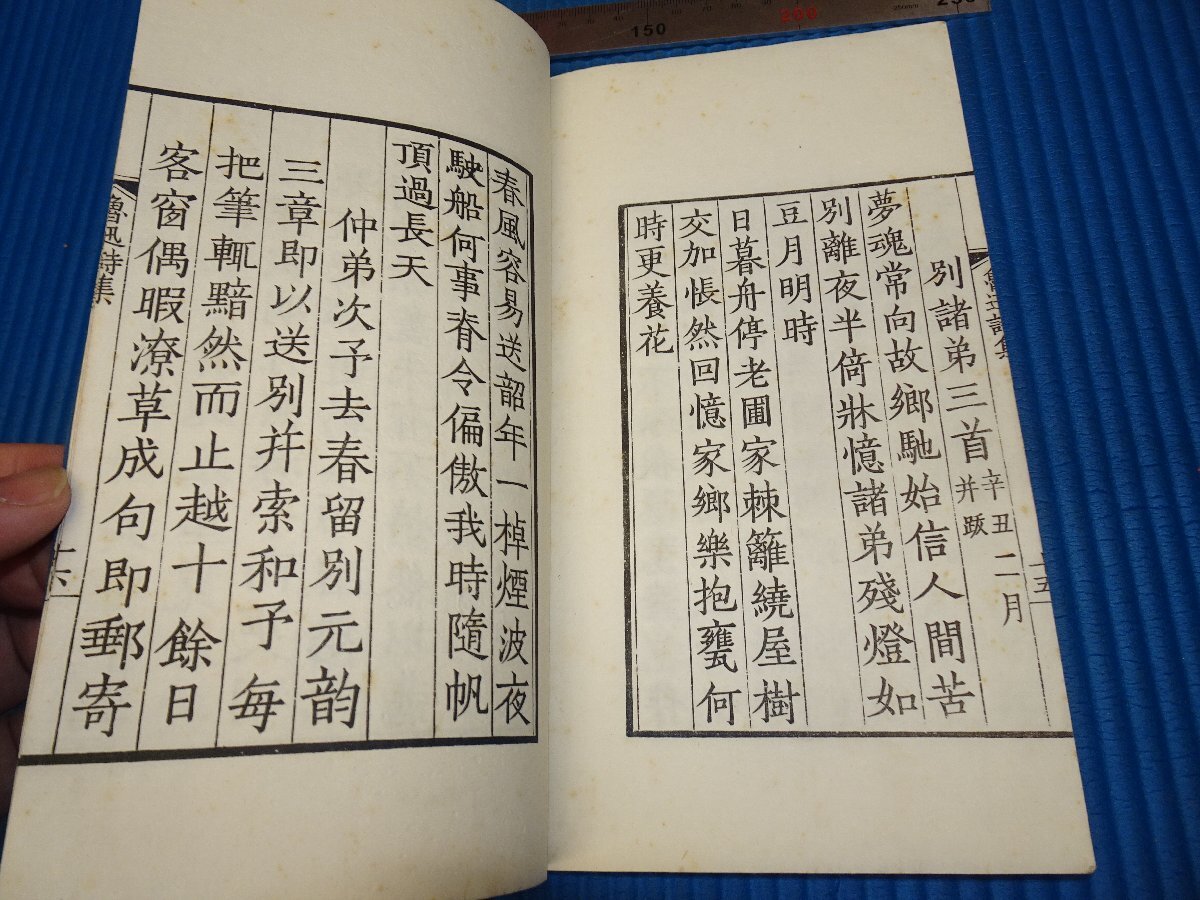 魯迅詩集
十五
別諸弟三首 辛丑二月
并跋
夢魂常向故鄉馳始信人間苦
別離夜半倚牀憶諸弟殘燈如
豆月明時
日暮舟停老圃家棘籬繞屋樹
交加悵然回憶家鄉樂抱甕何
時更養花
春風容易送韶年一棹煙波夜
駛船何事脊令偏傲我時隨帆
頂過長天
仲弟次予去春留別元韵
三章即以送別并索和予每
把筆輒黯然而止越十餘日
客窗偶暇潦草成句即郵寄
魯迅詩集
十六
150
200
250
250mm